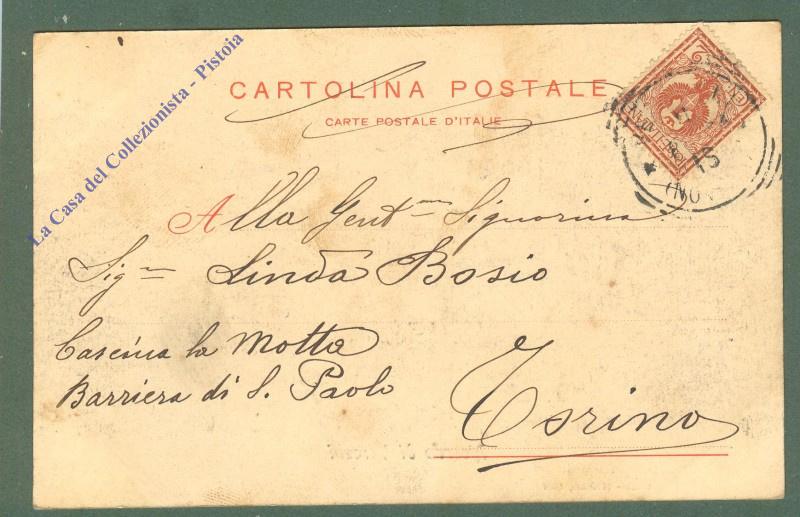 La Casa del Collezionista - Pistoia
CARTOLINA POSTALE
CARTE POSTALE D'ITALIE
Alla Gent.ma Signorina
Sig.na Linda Bosio
Cascina la Motta
Barriera di S. Paolo
Torino